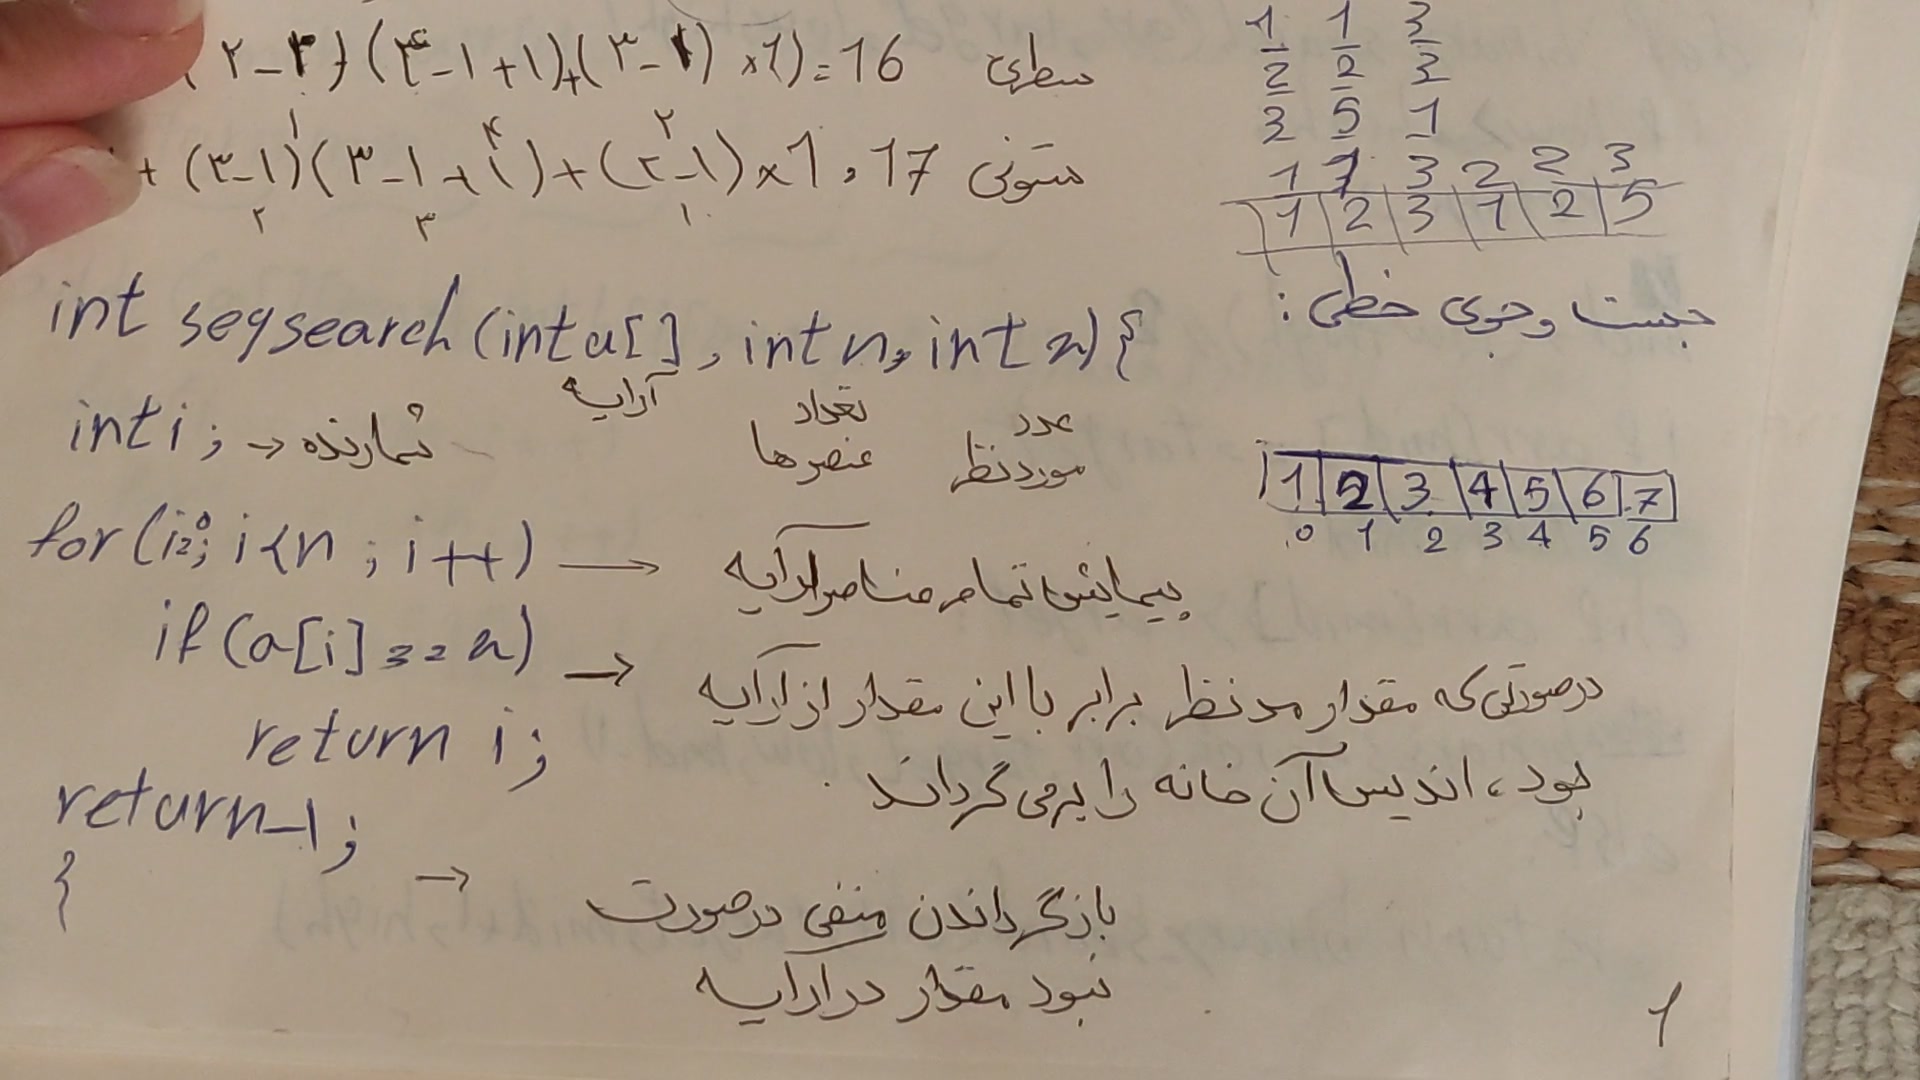 (۲-۳)+(۴-۱+۱)+(۳-۱)×1)=16 سطری
+(۳-۱)(۳-۱+۱)+(۲-۱)×1=17 ستونی
1 1 3
2 2 2
3 5 1
1 1 3 2 2 3
1 2 3 1 2 5
جست و جوی خطی:
int seqsearch (int a[], int n, int x) {
آرایه
تعداد عنصرها
عدد موردنظر
int i; → شمارنده
1 2 3 4 5 6 7
0 1 2 3 4 5 6
for (i=0; i<n ; i++) → پیمایش تمام عناصر آرایه
if (a[i] == x) → درصورتی که مقدار مدنظر برابر با این مقدار از آرایه
return i;
بود، اندیس آن خانه را برمی گرداند
return -1;
{ → بازگرداندن منفی درصورت
نبود مقدار در آرایه
1